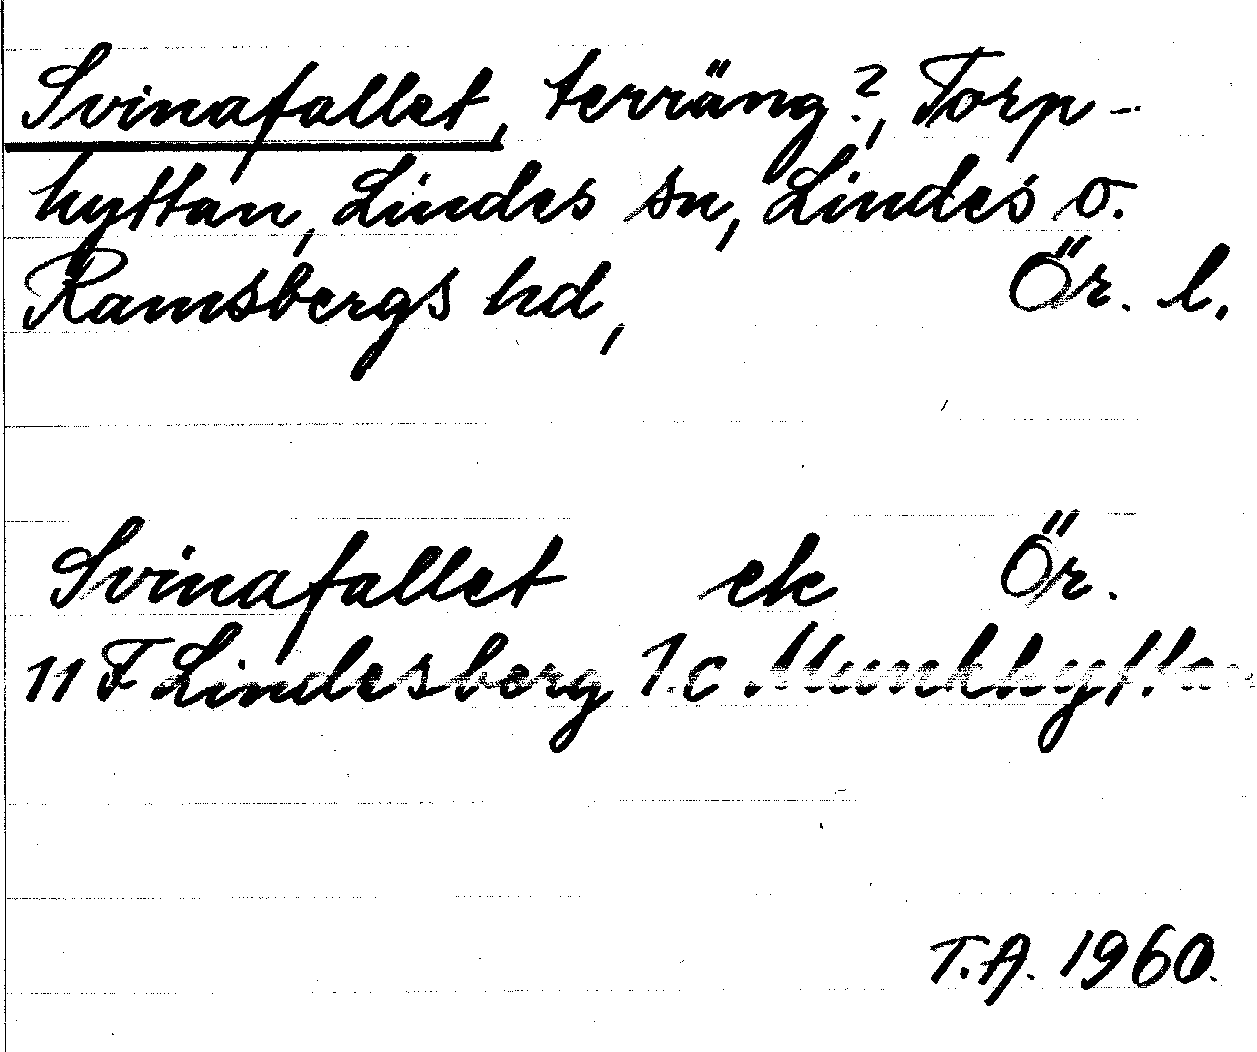 Svinafallet, terräng?, Torp-
hyttan, Lindes sn, Lindes o.
Ramsbergs hd, Ör. l.
Svinafallet ek Ör.
11 F Lindesberg 1 c Munkhyttan
T.A. 1960